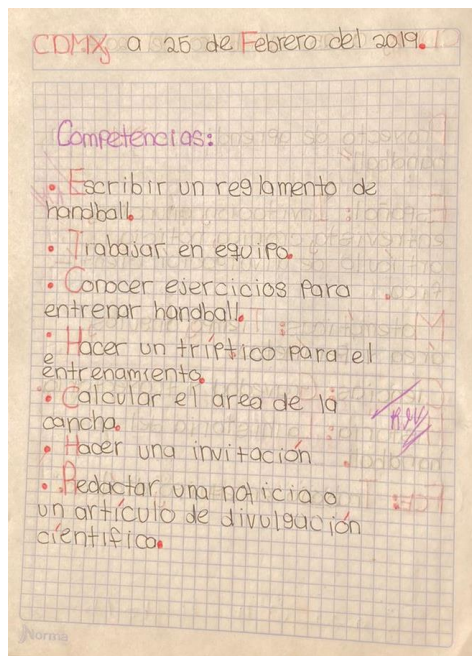 CDMX a 25 de Febrero del 2019.
Competencias:
• Escribir un reglamento de
handball.
• Trabajar en equipo.
• Conocer ejercicios para
entrenar handball.
• Hacer un tríptico para el
entrenamiento.
• Calcular el area de la
cancha.
• Hacer una invitación.
• Redactar una noticia o
un artículo de divulgación
científica.
Norma